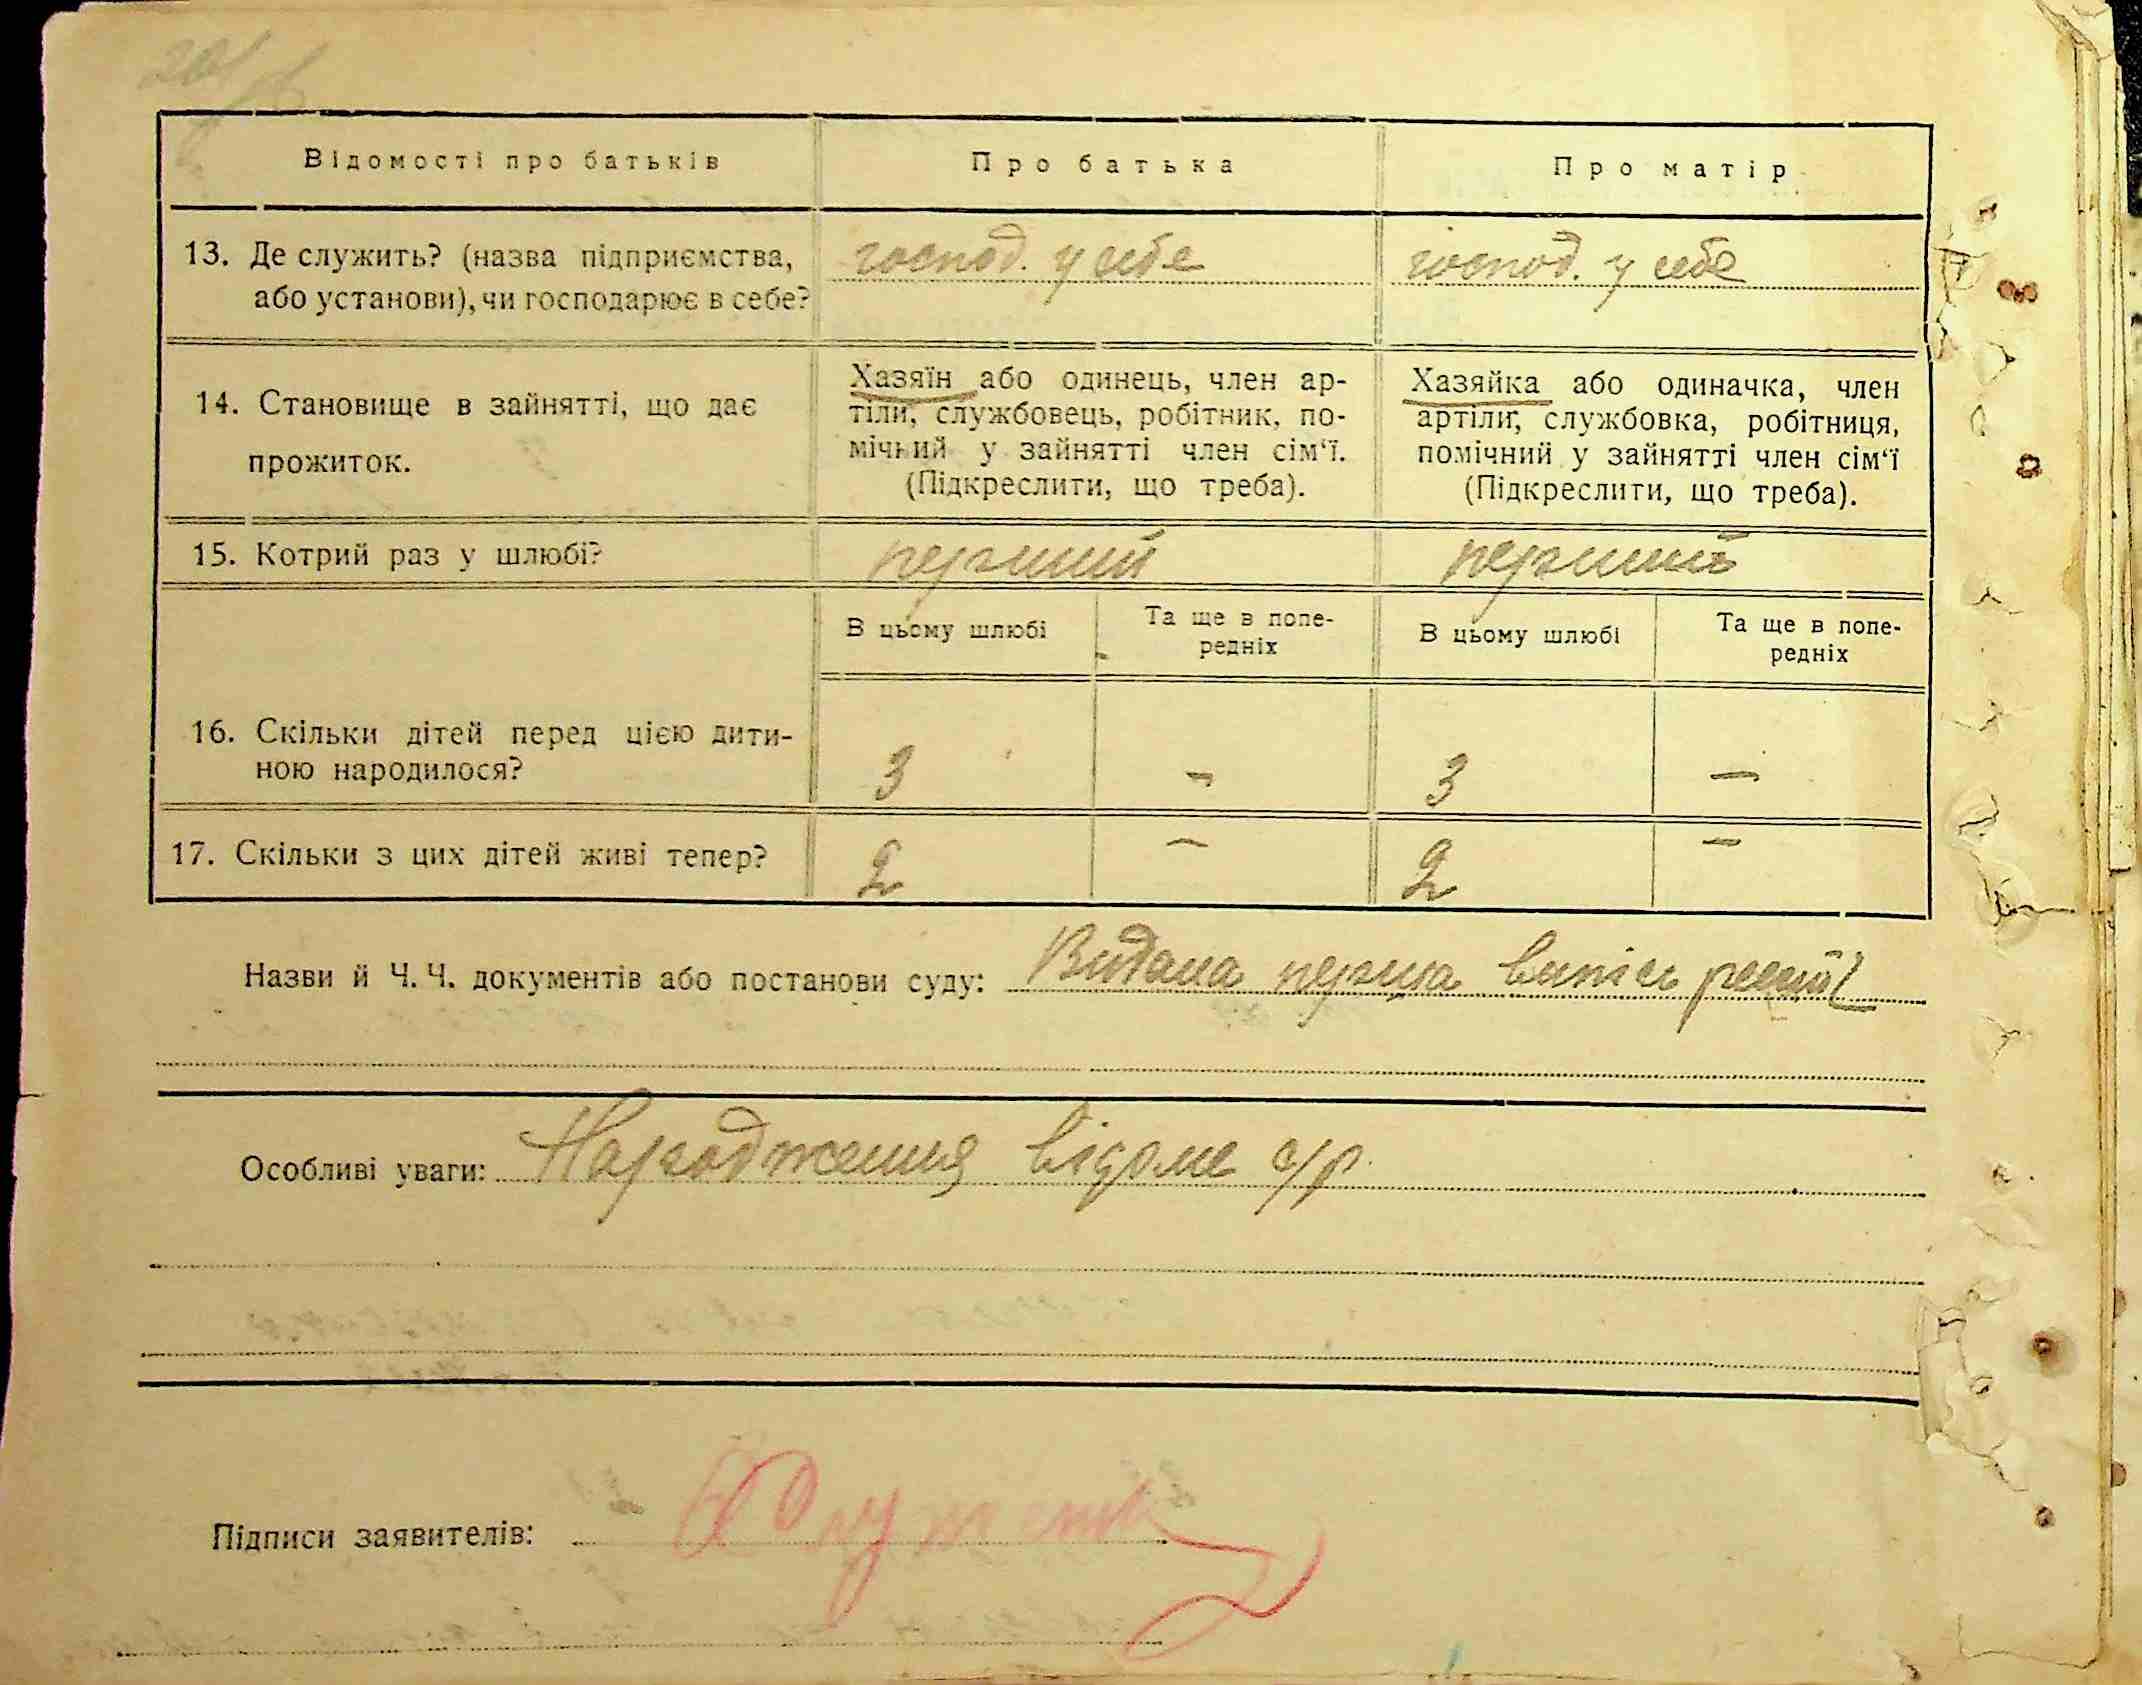 Відомості про батьків
Про батька
Про матір
13. Де служить? (назва підприємства,
або установи), чи господарює в себе?
господ. у себе
господ. у себе
14. Становище в зайнятті, що дає
прожиток.
Хазяїн або одинець, член ар-
тіли, службовець, робітник, по-
мічний у зайнятті член сім‘ї.
(Підкреслити, що треба).
Хазяйка або одиначка, член
артіли, службовка, робітниця,
помічний у зайнятті член сім‘ї
(Підкреслити, що треба).
15. Котрий раз у шлюбі?
перший
перший
В цьому шлюбі
Та ще в попе-
редніх
В цьому шлюбі
Та ще в попе-
редніх
16. Скільки дітей перед цією дити-
ною народилося?
3
-
3
-
17. Скільки з цих дітей живі тепер?
2
-
2
-
Назви й Ч. Ч. документів або постанови суду: Видана перша випись
Особливі уваги: Народження відоме с/р.
Підписи заявителів: